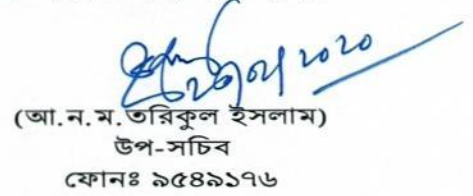 (আ.ন.ম.তরিকুল ইসলাম)
উপ-সচিব
ফোনঃ ৯৫৪৯১৭৬